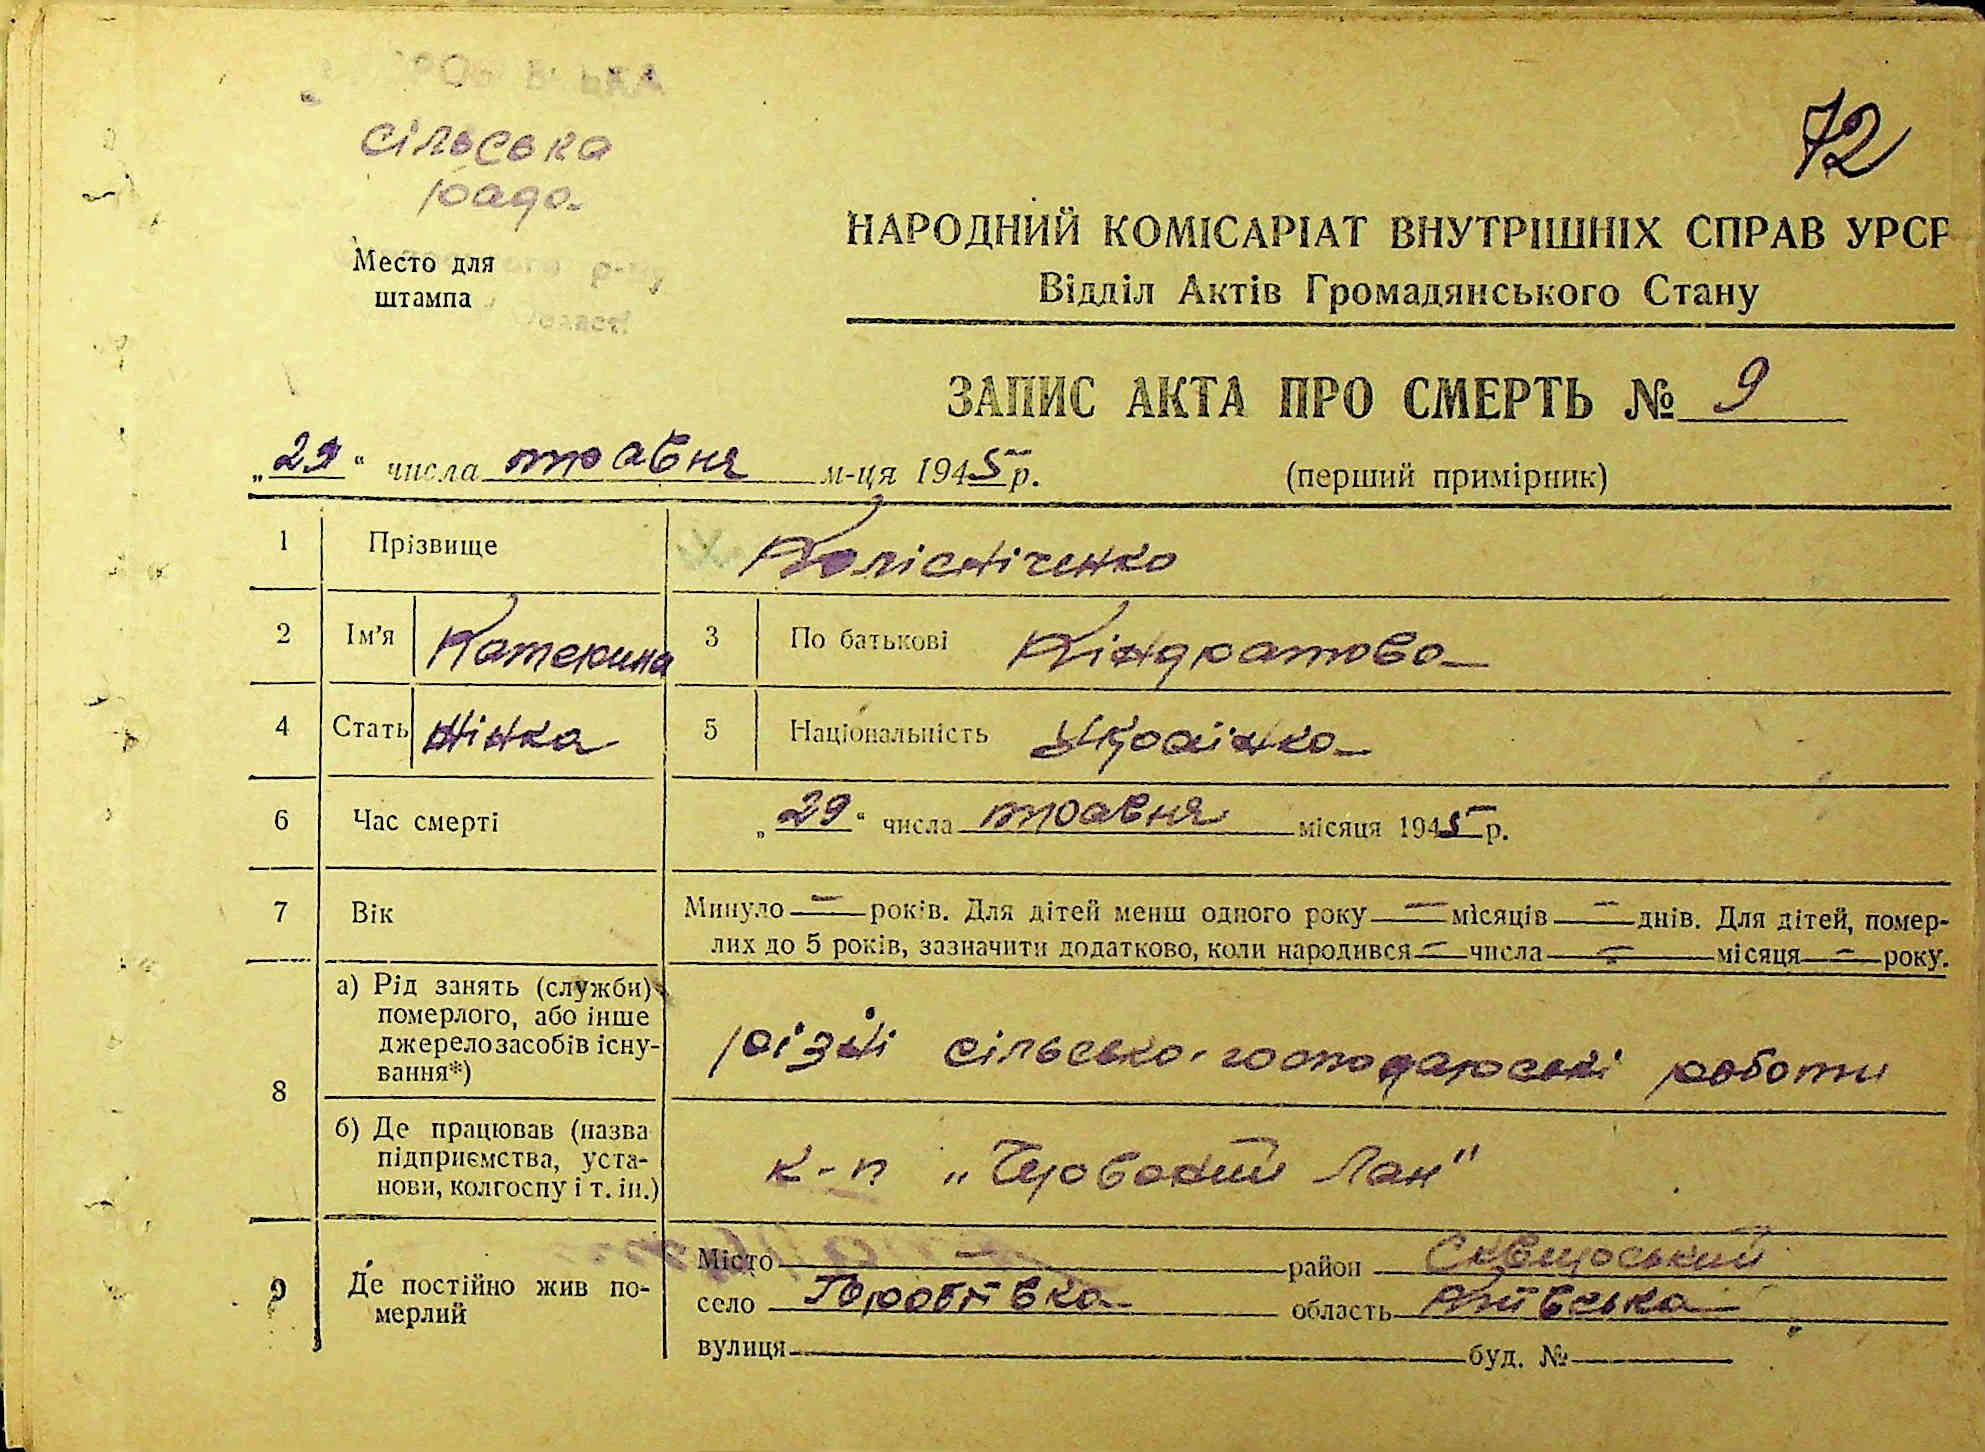 72
сільська
рада
Место для
штампа
НАРОДНИЙ КОМІСАРІАТ ВНУТРІШНІХ СПРАВ УРСР
Відділ Актів Громадянського Стану
ЗАПИС АКТА ПРО СМЕРТЬ № 9
„29“ числа травня м-ця 1945 р.
(перший примірник)
1 Прізвище Колісніченко
2 Ім’я Катерина 3 По батькові Кіндратова
4 Стать жінка 5 Національність Українка
6 Час смерті „29“ числа травня місяця 1945 р.
7 Вік Минуло — років. Для дітей менш одного року — місяців — днів. Для дітей, помер-
лих до 5 років, зазначити додатково, коли народився — числа — місяця — року.
8 а) Рід занять (служби)
померлого, або інше
джерело засобів існу-
вання*)
різні сільсько-господарські роботи
б) Де працював (назва
підприємства, уста-
нови, колгоспу і т. ін.)
к-п „Червоний Лан“
9 Де постійно жив по-
мерлий
Місто — район Сквирський
село Горобіївка область Київська
вулиця буд. №